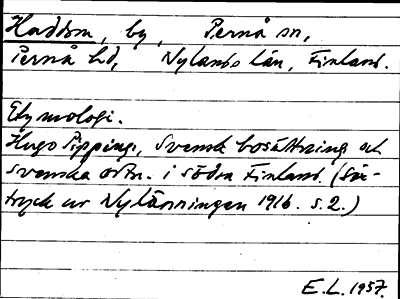 Haddom, by, Pernå sn,
Pernå hd, Nylands län, Finland.
Etymologi.
Hugo Pipping, Svensk bosättning och
svenska ortn. i södra Finland. (Sär-
tryck ur Nylänningen 1916. s. 2.)
E.L. 1957.